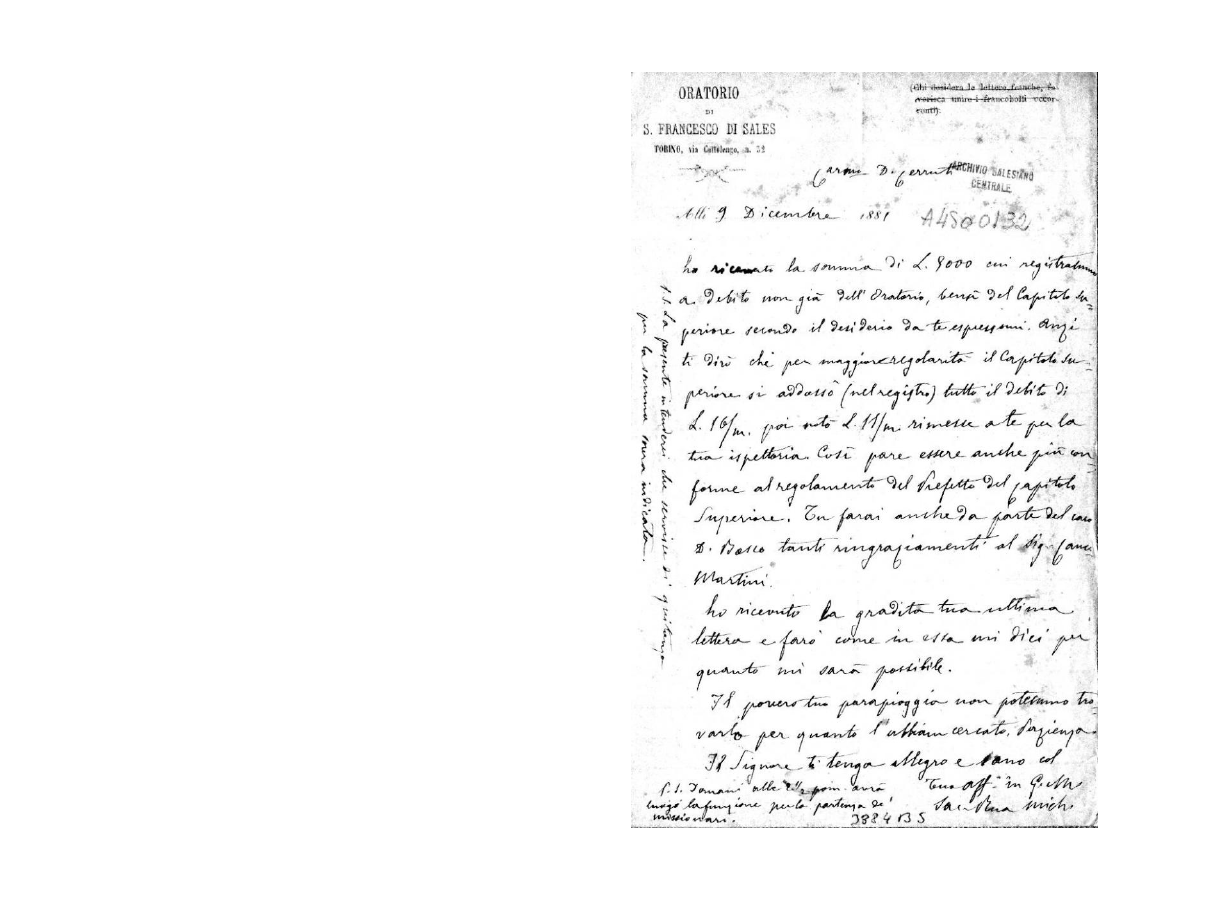 ORATORIO
DI
S. FRANCESCO DI SALES
TORINO, via Cottolengo, n. 32
(Chi desidera le lettere franche, fa-
vorisca unire i francobolli occor-
renti).
Carmo D. Cerruti
ARCHIVIO SALESIANO
CENTRALE
Alli 9 Dicembre 1881
A4500132
ho ricevuto la somma di L. 5000 cui registrammo
a debito non già dell'Oratorio, bensì del Capitolo Su-
periore secondo il desiderio da te espressomi. Anzi
ti dirò che per maggior regolarità il Capitolo Su-
periore si addossò (nel registro) tutto il debito di
L. 16/m. poi notò L. 11/m rimesse a te per la
tua ispettoria. Così pare essere anche più con-
forme al regolamento del Prefetto del Capitolo
Superiore. Tu farai anche da parte del caro
D. Bosco tanti ringraziamenti al Sig.
Martini.
ho ricevuto la gradita tua ultima
lettera e farò come in essa mi dici per
quanto mi sarà possibile.
Il povero tuo parapioggia non potemmo tro-
varlo per quanto l'abbiam cercato. Pazienza.
Il Signore ti tenga allegro e sano col
Tuo aff. in G. e M.
Sac. Rua Mich.
P.S. Domani alle 2 1/2 pom. avrà
luogo la funzione per la partenza de'
missionari.
3884 B5
P.S. La presente intendesi che servisse di quitanza
per la somma sovra indicata.